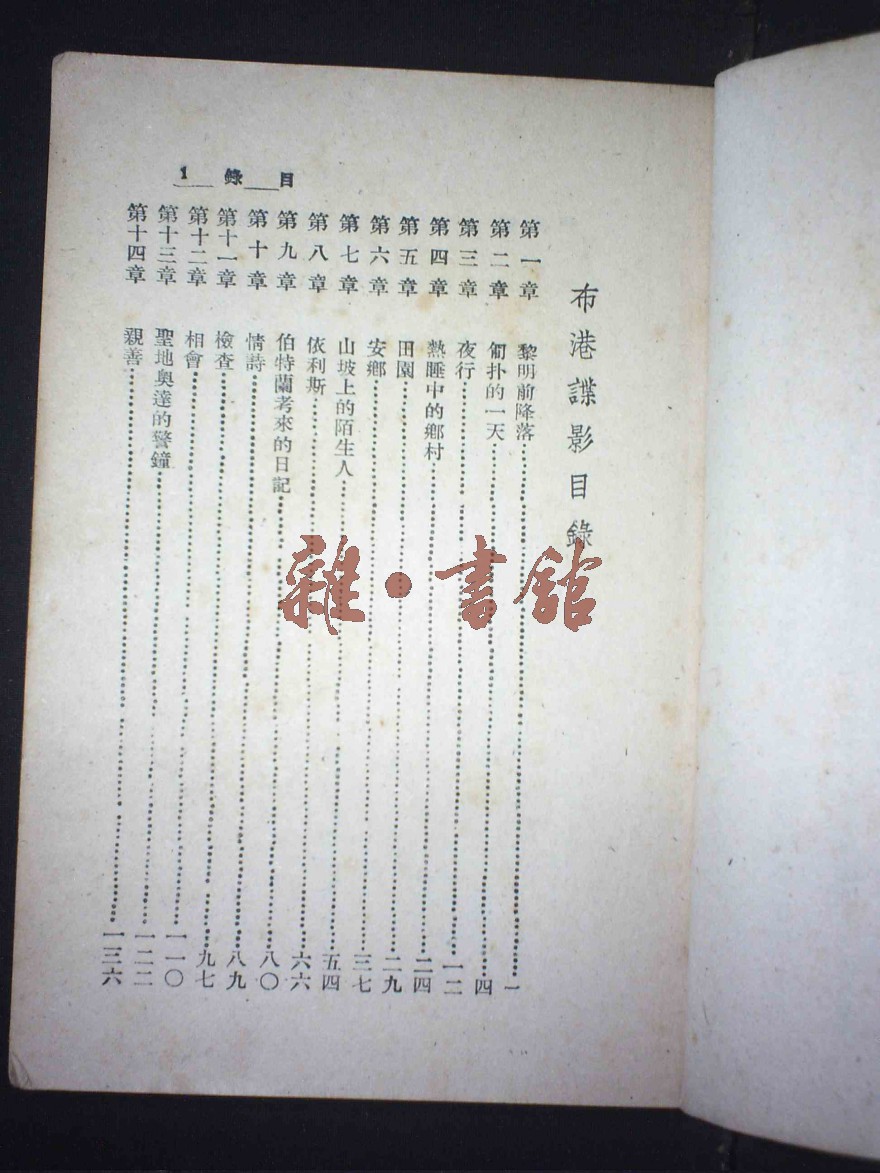 目錄 1
布港諜影目錄
第一章 黎明前降落 一
第二章 匍扑的一天 四
第三章 夜行 一二
第四章 熱睡中的鄉村 二四
第五章 田園 二九
第六章 安鄉 三七
第七章 山坡上的陌生人 五四
第八章 依利斯 六六
第九章 伯特蘭考來的日記 八〇
第十章 情詩 八九
第十一章 檢查 九七
第十二章 相會 一一〇
第十三章 聖地奧達的警鐘 一二二
第十四章 親善 一三六
雜·書館